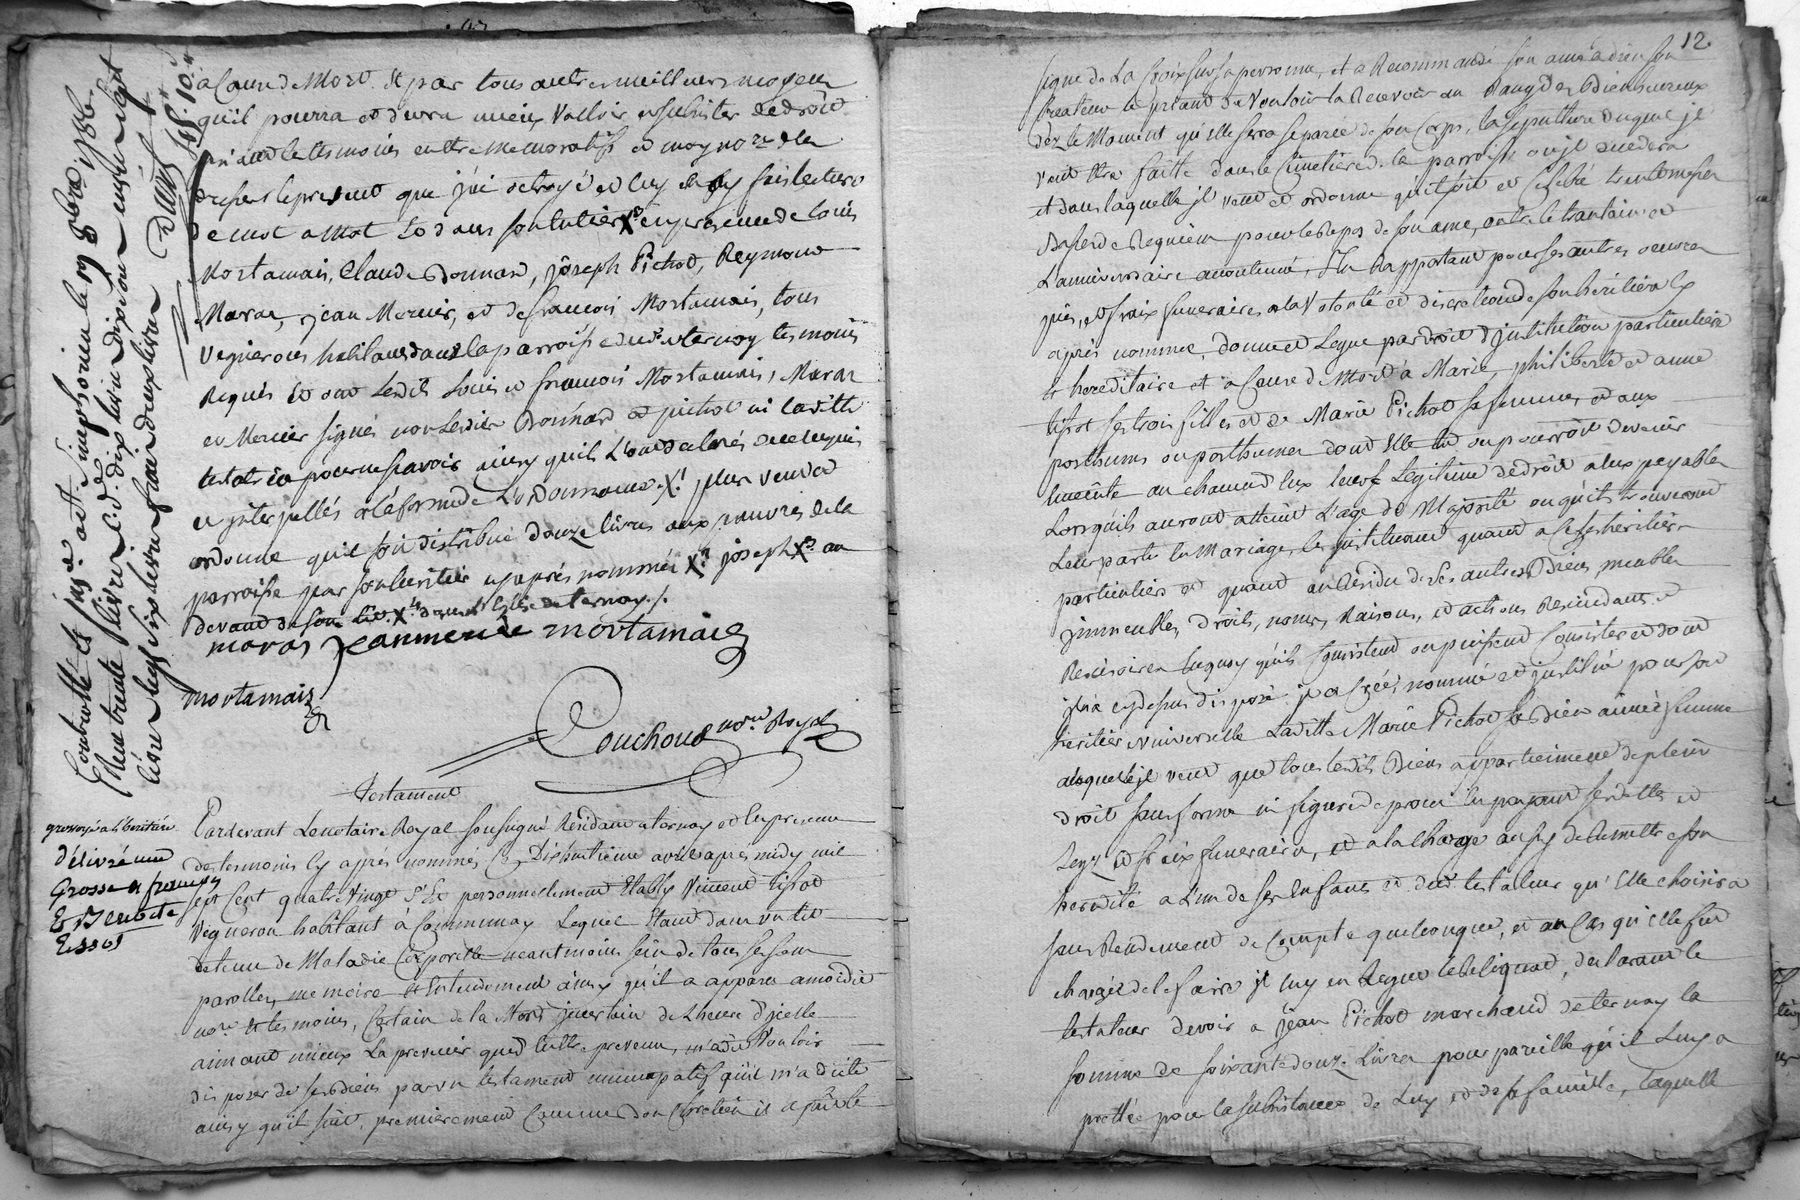 a Cause de Mort. Et par tous autres meilleurs moyens
qu'il pourra et devra mieux Valloir et subsister de droit
priant les tesmoins en être memoratifs et moy no.re de la
presente que j'ai octroyé et luy ay fais lecture
de mot a mot Et dans son en presence de Louis
Mortamais, Claude Donnard, joseph Pichot, Reymond
Maras, jean Mercier, et de francois Mortamais, tous
Vignerons habitans dans la parroisse de ternay tesmoins
Requis Et ont Lesdits Louis et francois Mortamais, Maras
et Mercier signés non Lesdits Donnard et pichot ni Laditte
testatrice pour ne scavoir ainsy qu'ils L'ont declarés de ce enquis
et jnterpellés a la forme de L'ordonnance. plus veut et
ordonne qu'il soit distribué douze livres aux pauvres de la
parroisse par son heritier cy après nommé joseph au
devant de son de ternay ./.
maras jean mercie mortamais
mortamais
Couchoud no.re Royal
Controllé et à st simphorien le 1786
Reçu trente livres
Testament
délivré une
Grosse a françois
Et Benoite
Tissot
Pardevant Le notaire Royal soussigné Résidant a ternay et En presence
des tesmoins cy après nommés, Ce Dixhuitieme avril apres midy mil
sept Cent quatre Vingt S'Est personnellement Etably Vincent tissot
Vigneron habitant à Communay Lequel Etant dans un lit
detenu de Maladie Corporelle neantmoins sain de tous ses sens
parolles, memoire Et Entendement ainsy qu'il a apparu a moi dit
no.re Et tesmoins, Certain de la Mort jncertain de L'heure d'jcelle
aimant mieux La prevenir que d'En être prevenu, m'a dit Vouloir
disposer de ses biens par un testament nuncupatif qu'il m'a dicté
ainsy qu'il suit, premierement Comme bon Chretien il a fait le
12
signe de La Croix sur sa personne, et a Recommandé son ame a dieu son
Createur Le priant de Vouloir la Recevoir au Rang des Bienheureux
dez le Moment qu'elle sera separée de son Corps, la sepulture duquel je
veut être faitte dans le Cimetiere de la parroisse ou jl decedera
et dans laquelle jl veut et ordonne qu'il soit célébré trente messes
Basses de Requiem pour le Repos de son ame, outre le trantain et
L'anniversaire accoutumé, S'En Rapportant pour ses autres oeuvres
pies, et fraix funeraires a la Volonté et discretion de son héritiere cy
après nommée, donne et Legue par droit d'jnstitution particuliere
et hereditaire et a Cause de Mort à Marie, philiberte et anne
tissot ses trois filles et de Marie Pichot sa femme, et aux
posthumes ou posthumes dont Elle est ou pourroit devenir
Enceinte au chacun Eux Leur Légitime de droit a Eux payable
Lorsqu'ils auront atteint L'age de Majorité ou qu'ils trouveront
Leur partis En Mariage, les jnstituant quand a ce ses héritiers
particuliers et quand au Résidu de ses autres Biens, meubles
jmmeubles, droits, noms, Raisons, et actions, Rescindants et
Rescisoires En quoy qu'ils Consistent ou puissent Consister et dont
jl n'a cy dessus disposé jl a Créé, nommé et jnstitué pour son
heritiere Universelle Laditte Marie Pichot sa Bien aimée femme
a laquelle jl veut que tous lesdits Biens appartiennent de plein
droit sans forme ni figure de procès En payant ses dettes et
Legs et fraix funeraires, et a la charge aussy de Remettre son
heredité a L'un de ses Enfans et dudit testateur qu'Elle choisira
sans Rendement de Compte quelconque, et au Cas qu'elle fut
chargée de le faire jl luy en Legue le Reliquat, declarant le
testateur devoir a jean Pichot marchand de ternay la
somme de soixante douze Livres pour pareille qu'il Luy a
prettée pour la subsistance de Luy et de sa famille, laquelle